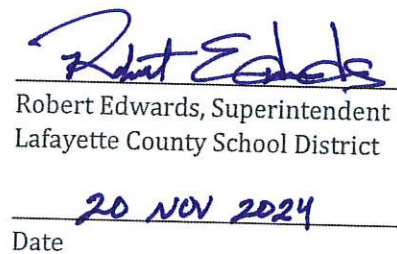 Robert Edwards
Robert Edwards, Superintendent
Lafayette County School District
20 NOV 2024
Date